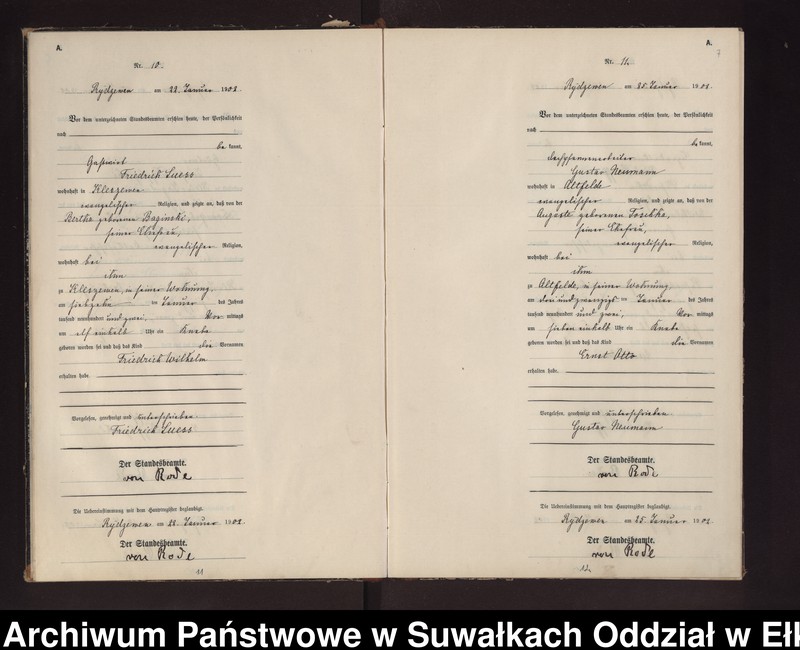 A.
Nr. 10.
Rydzewen am 22. Januar 1902.
Vor dem unterzeichneten Standesbeamten erschien heute, der Persönlichkeit
nach
be kannt,
Gastwirt
Friedrich Suess
wohnhaft in Kleszewen
evangelischer Religion, und zeigte an, daß von der
Bertha geborenen Bazinski,
seiner Ehefrau,
evangelischer Religion,
wohnhaft bei
ihm
zu Kleszewen, in seiner Wohnung,
am siebzehn ten Januar des Jahres
tausend neunhundert und zwei, Vor mittags
um elf einhalb Uhr ein Knabe
geboren worden sei und daß das Kind die Vornamen
Friedrich Wilhelm
erhalten habe.
Vorgelesen, genehmigt und unterschrieben
Friedrich Suess
Der Standesbeamte.
von Rode
Die Uebereinstimmung mit dem Hauptregister beglaubigt.
Rydzewen am 22. Januar 1902.
Der Standesbeamte.
von Rode
11
A.
Nr. 11.
Rydzewen am 25. Januar 1902.
Vor dem unterzeichneten Standesbeamten erschien heute, der Persönlichkeit
nach
be kannt,
Gustav Neumann
wohnhaft in Altfelde
evangelischer Religion, und zeigte an, daß von der
Auguste geborenen
seiner Ehefrau,
evangelischer Religion,
wohnhaft bei
ihm
zu Altfelde, in seiner Wohnung,
am dreiundzwanzigs ten Januar des Jahres
tausend neunhundert und zwei, Vor mittags
um sieben einhalb Uhr ein Knabe
geboren worden sei und daß das Kind die Vornamen
Ernst Otto
erhalten habe.
Vorgelesen, genehmigt und unterschrieben
Gustav Neumann
Der Standesbeamte.
von Rode
Die Uebereinstimmung mit dem Hauptregister beglaubigt.
Rydzewen am 25. Januar 1902
Der Standesbeamte.
von Rode
12
Archiwum Państwowe w Suwałkach Oddział w Ełk